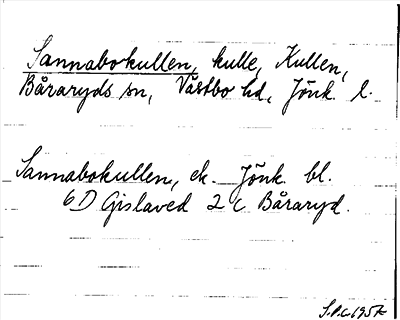 Sannabokullen, kulle, Kullen,
Båraryds sn, Västbo hd, Jönk. l.
Sannabokullen, ek. Jönk. bl.
6D Gislaved 2 c Båraryd.